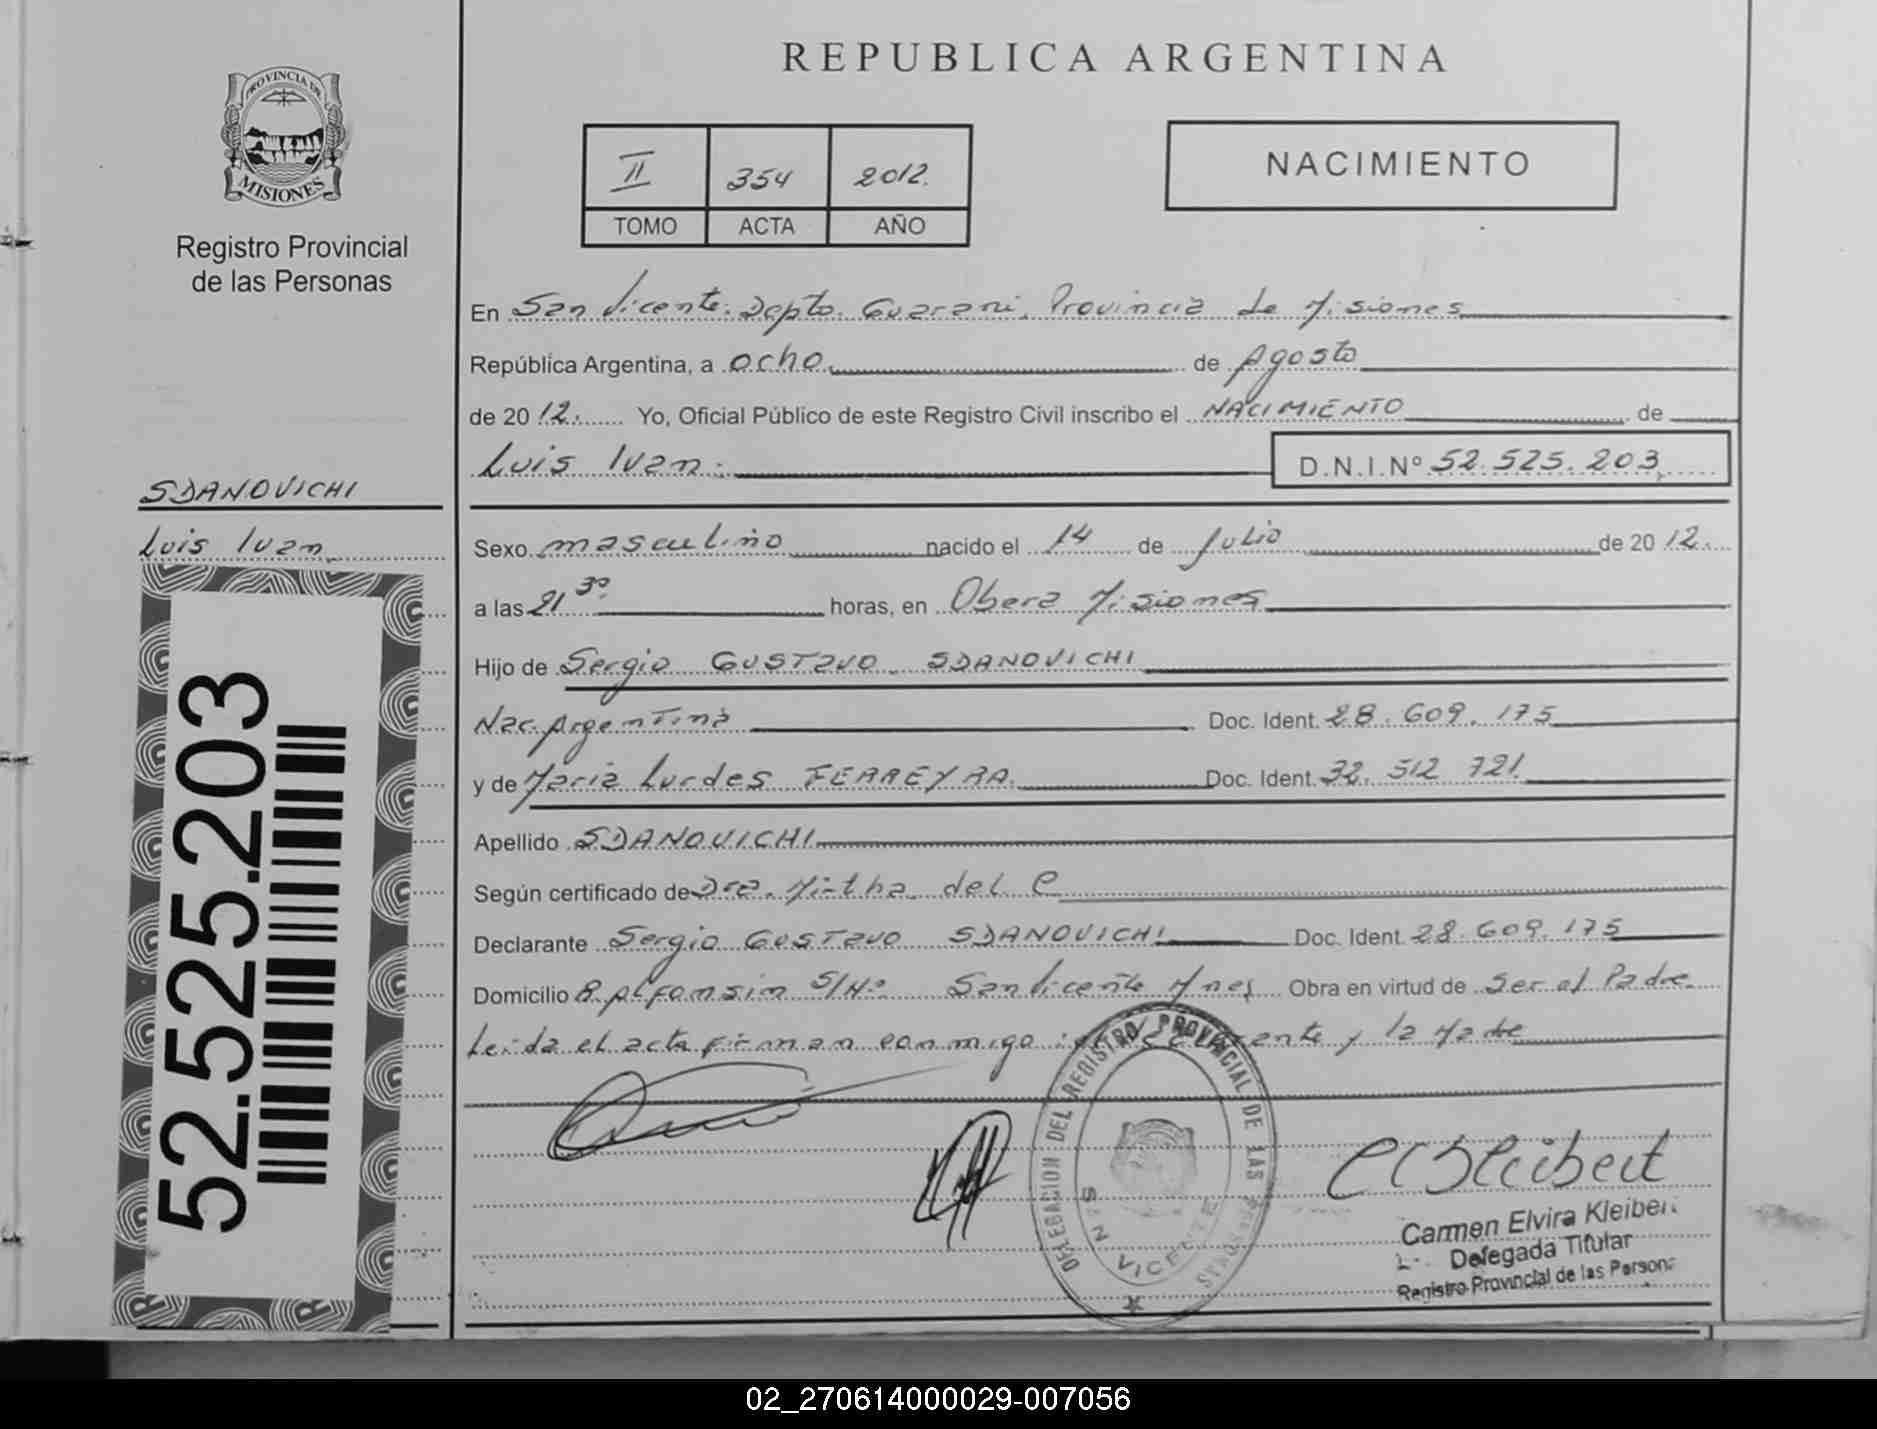 REPUBLICA ARGENTINA
PROVINCIA DE
MISIONES
Registro Provincial
de las Personas
II 354 2012.
TOMO ACTA AÑO
NACIMIENTO
En San Vicente. Depto. Guarani. Provincia de Misiones
República Argentina, a ocho. de Agosto
de 2012. Yo, Oficial Público de este Registro Civil inscribo el NACIMIENTO de
Luis Ivan.
D.N.I.Nº 52.525.203
SDANOVICHI
Luis Ivan
52.525.203
Sexo masculino nacido el 14 de Julio de 2012.
a las 21 30 horas, en Obera Misiones
Hijo de Sergio GUSTavo SDANOVICHI
Nac. Argentina Doc. Ident. 28.609.175
y de Maria Lurdes FERREYRA. Doc. Ident. 32.512 721.
Apellido SDANOVICHI
Según certificado de Dra. Mirtha del C
Declarante Sergio GUSTavo SDANOVICHI Doc. Ident. 28.609.175
Domicilio R Alfonsin S/Nº San Vicente Mnes Obra en virtud de Ser el Padre.
Leida el acta firman conmigo y la Madre
DELEGACION DEL REGISTRO PROVINCIAL DE LAS PERSONAS
SAN VICENTE
Carmen Elvira Kleiber
Delegada Titular
Registro Provincial de las Persona
02_270614000029-007056